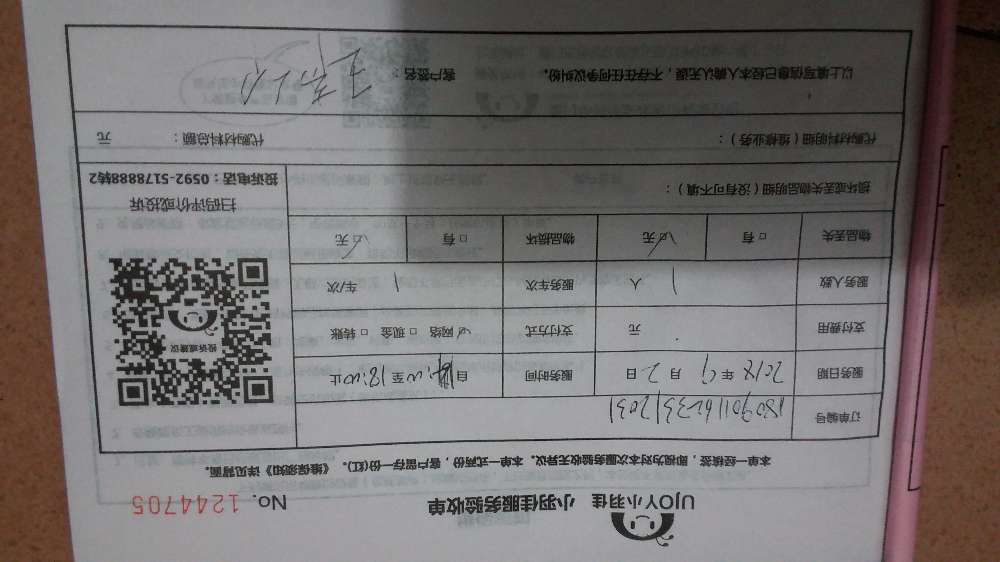 UJOY小羽佳 小羽佳服务验收单 No. 1244705
本单一经核签，即视为对本次服务验收无异议。本单一式两份，客户留存一份(红)。《维保须知》详见背面。
订单编号
服务日期 2018 年 9 月 2 日 服务时间 自 至 18:00 止
支付费用 元 支付方式 ☑ 网络 □ 现金 □ 转账
服务人数 1 人 服务车次 1 车/次
物品丢失 □ 有 ☑ 无 物品损坏 □ 有 ☑ 无
投诉或建议
扫码评价或投诉
投诉电话：0592-5178888转2
损坏或丢失物品明细（没有可不填）：
代购材料明细（维修业务）： 代购材料总额： 元
以上填写信息已经本人确认无误，不存在任何争议纠纷。 客户签名：